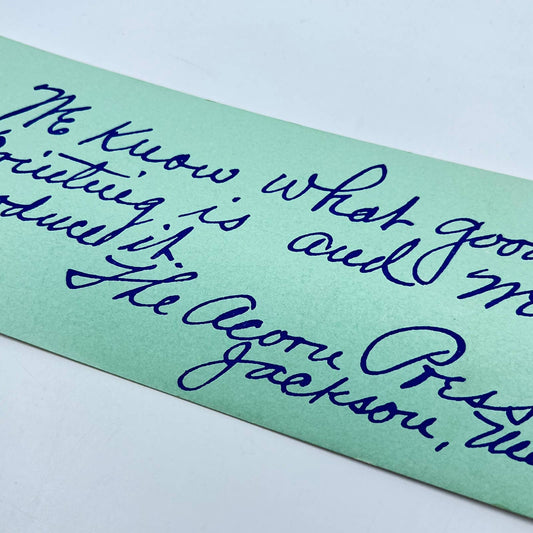 We Know what good
Printing is and
oduce it.
The Acorn Press
Jackson,